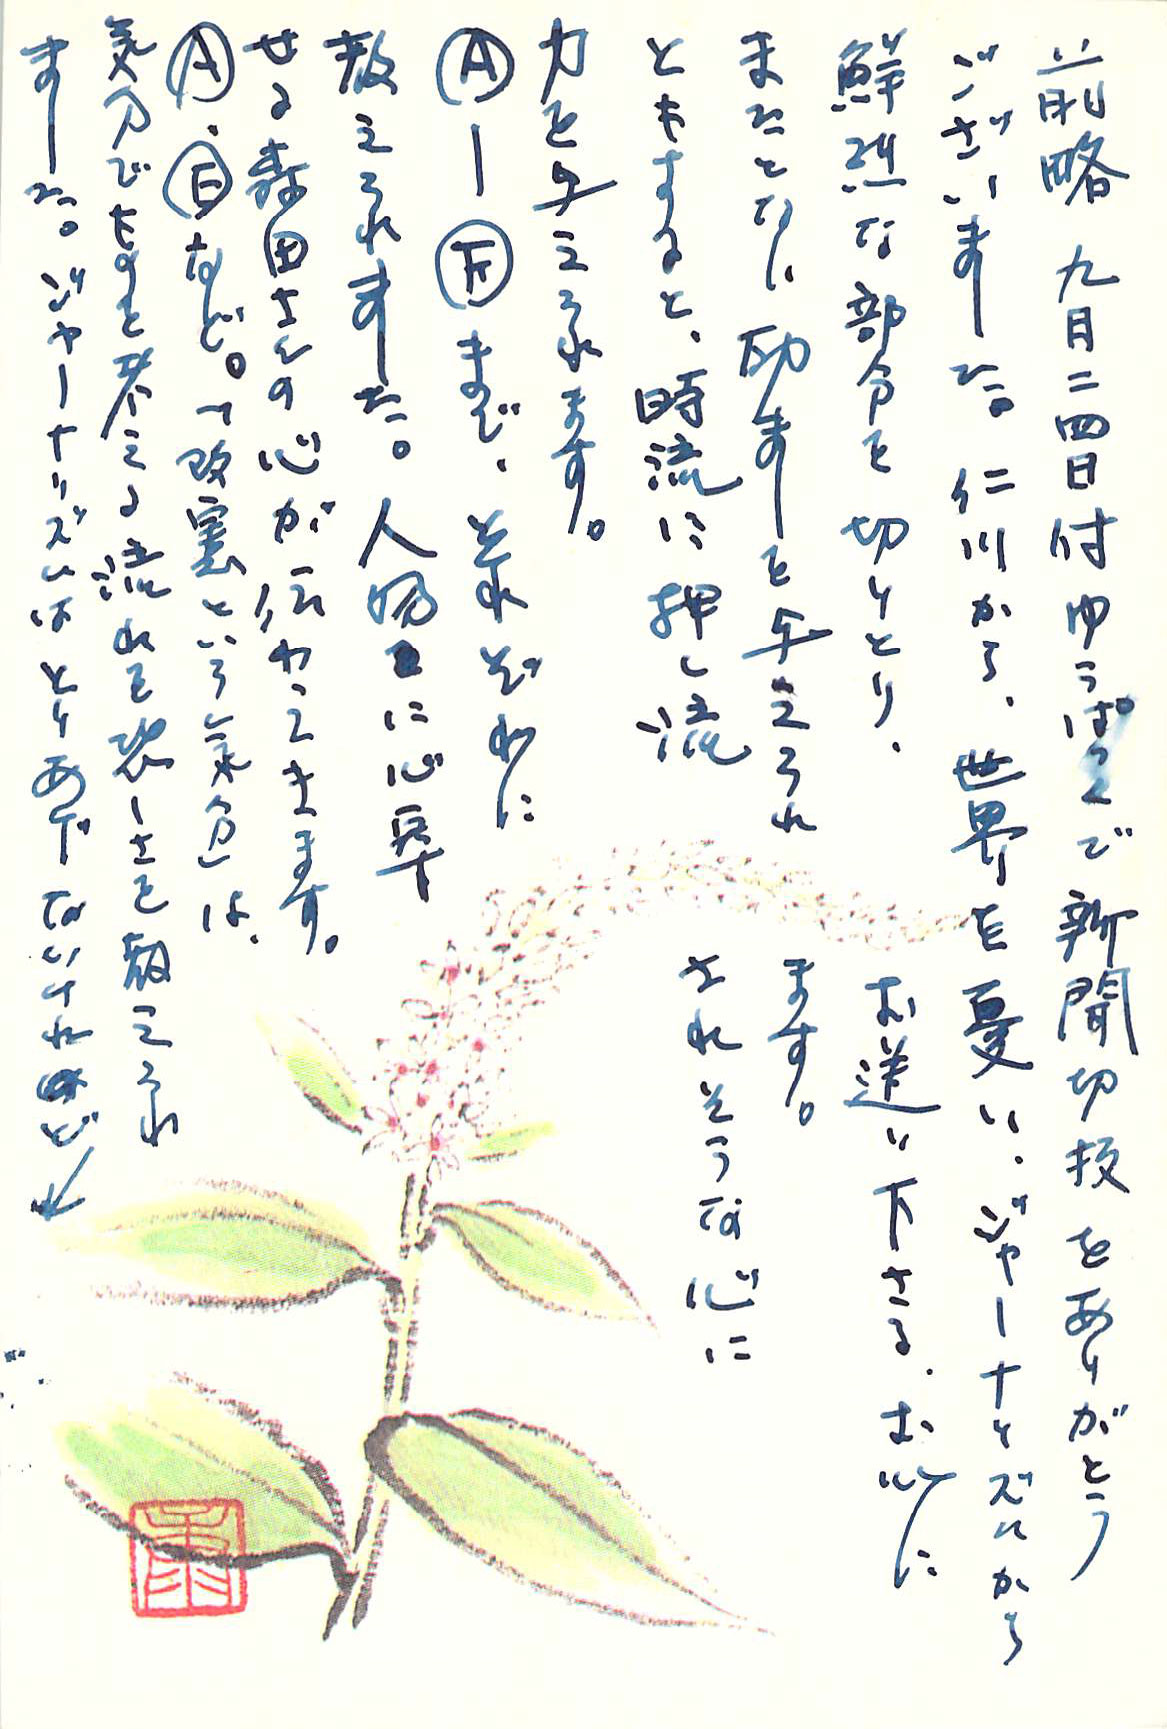 前略 九月二四日付ゆうぱっくで新聞切抜をありがとう
ございました。仁川から、世界を憂い、ジャーナリズムから
鮮烈な部分を切りとり、お送り下さる、お心に
またとない励ましを与えられます。
ともすると、時流に押し流されそうな心に
力を与えられます。
Ⓐ―Ⓕまで、それぞれに
教えられました。人物に心寄
せる森田さんの心が伝わってきます。
Ⓐ、Ⓔなど。「改憲という気分」は、
気分でものを考える流れを恐しさを教えられ
ました。ジャーナリズムはとりあげないけれど